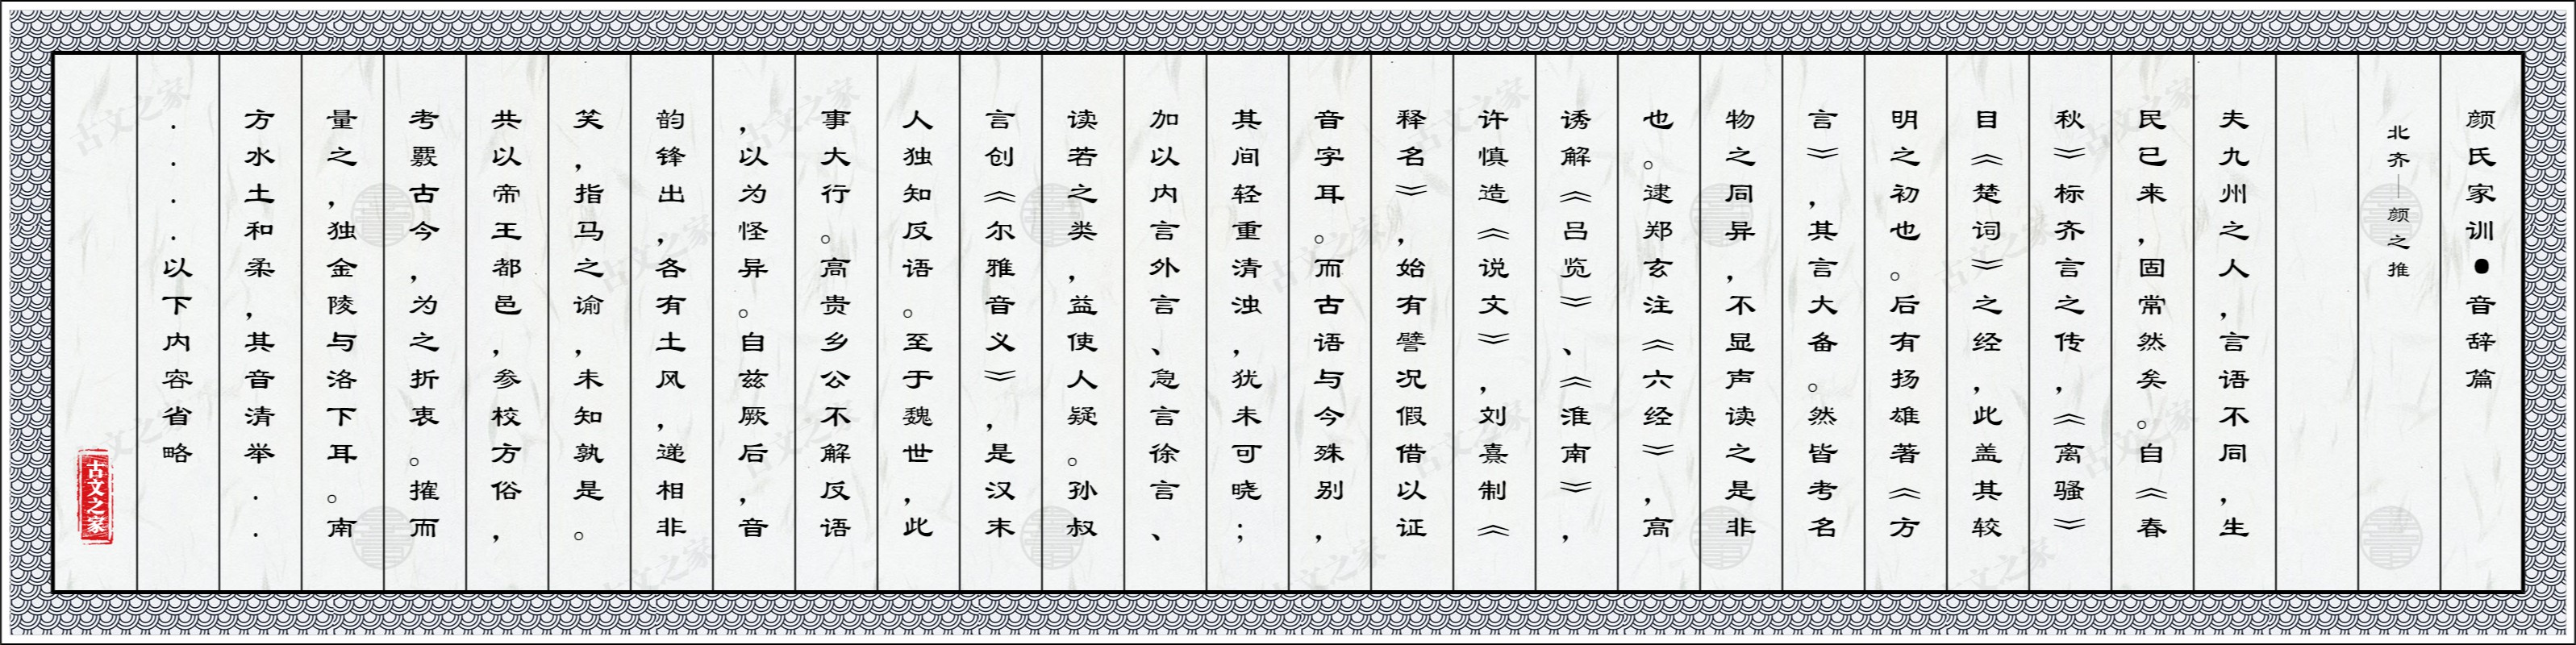 颜氏家训●音辞篇
北齐—颜之推
夫九州之人，言语不同，生
民已来，固常然矣。自《春
秋》标齐言之传，《离骚》
目《楚词》之经，此盖其较
明之初也。后有扬雄著《方
言》，其言大备。然皆考名
物之同异，不显声读之是非
也。逮郑玄注《六经》，高
诱解《吕览》、《淮南》，
许慎造《说文》，刘熹制《
释名》，始有譬况假借以证
音字耳。而古语与今殊别，
其间轻重清浊，犹未可晓；
加以内言外言、急言徐言、
读若之类，益使人疑。孙叔
言创《尔雅音义》，是汉末
人独知反语。至于魏世，此
事大行。高贵乡公不解反语
，以为怪异。自兹厥后，音
韵锋出，各有土风，递相非
笑，指马之谕，未知孰是。
共以帝王都邑，参校方俗，
考覈古今，为之折衷。搉而
量之，独金陵与洛下耳。南
方水土和柔，其音清举．．
．．．．以下内容省略
古文之家